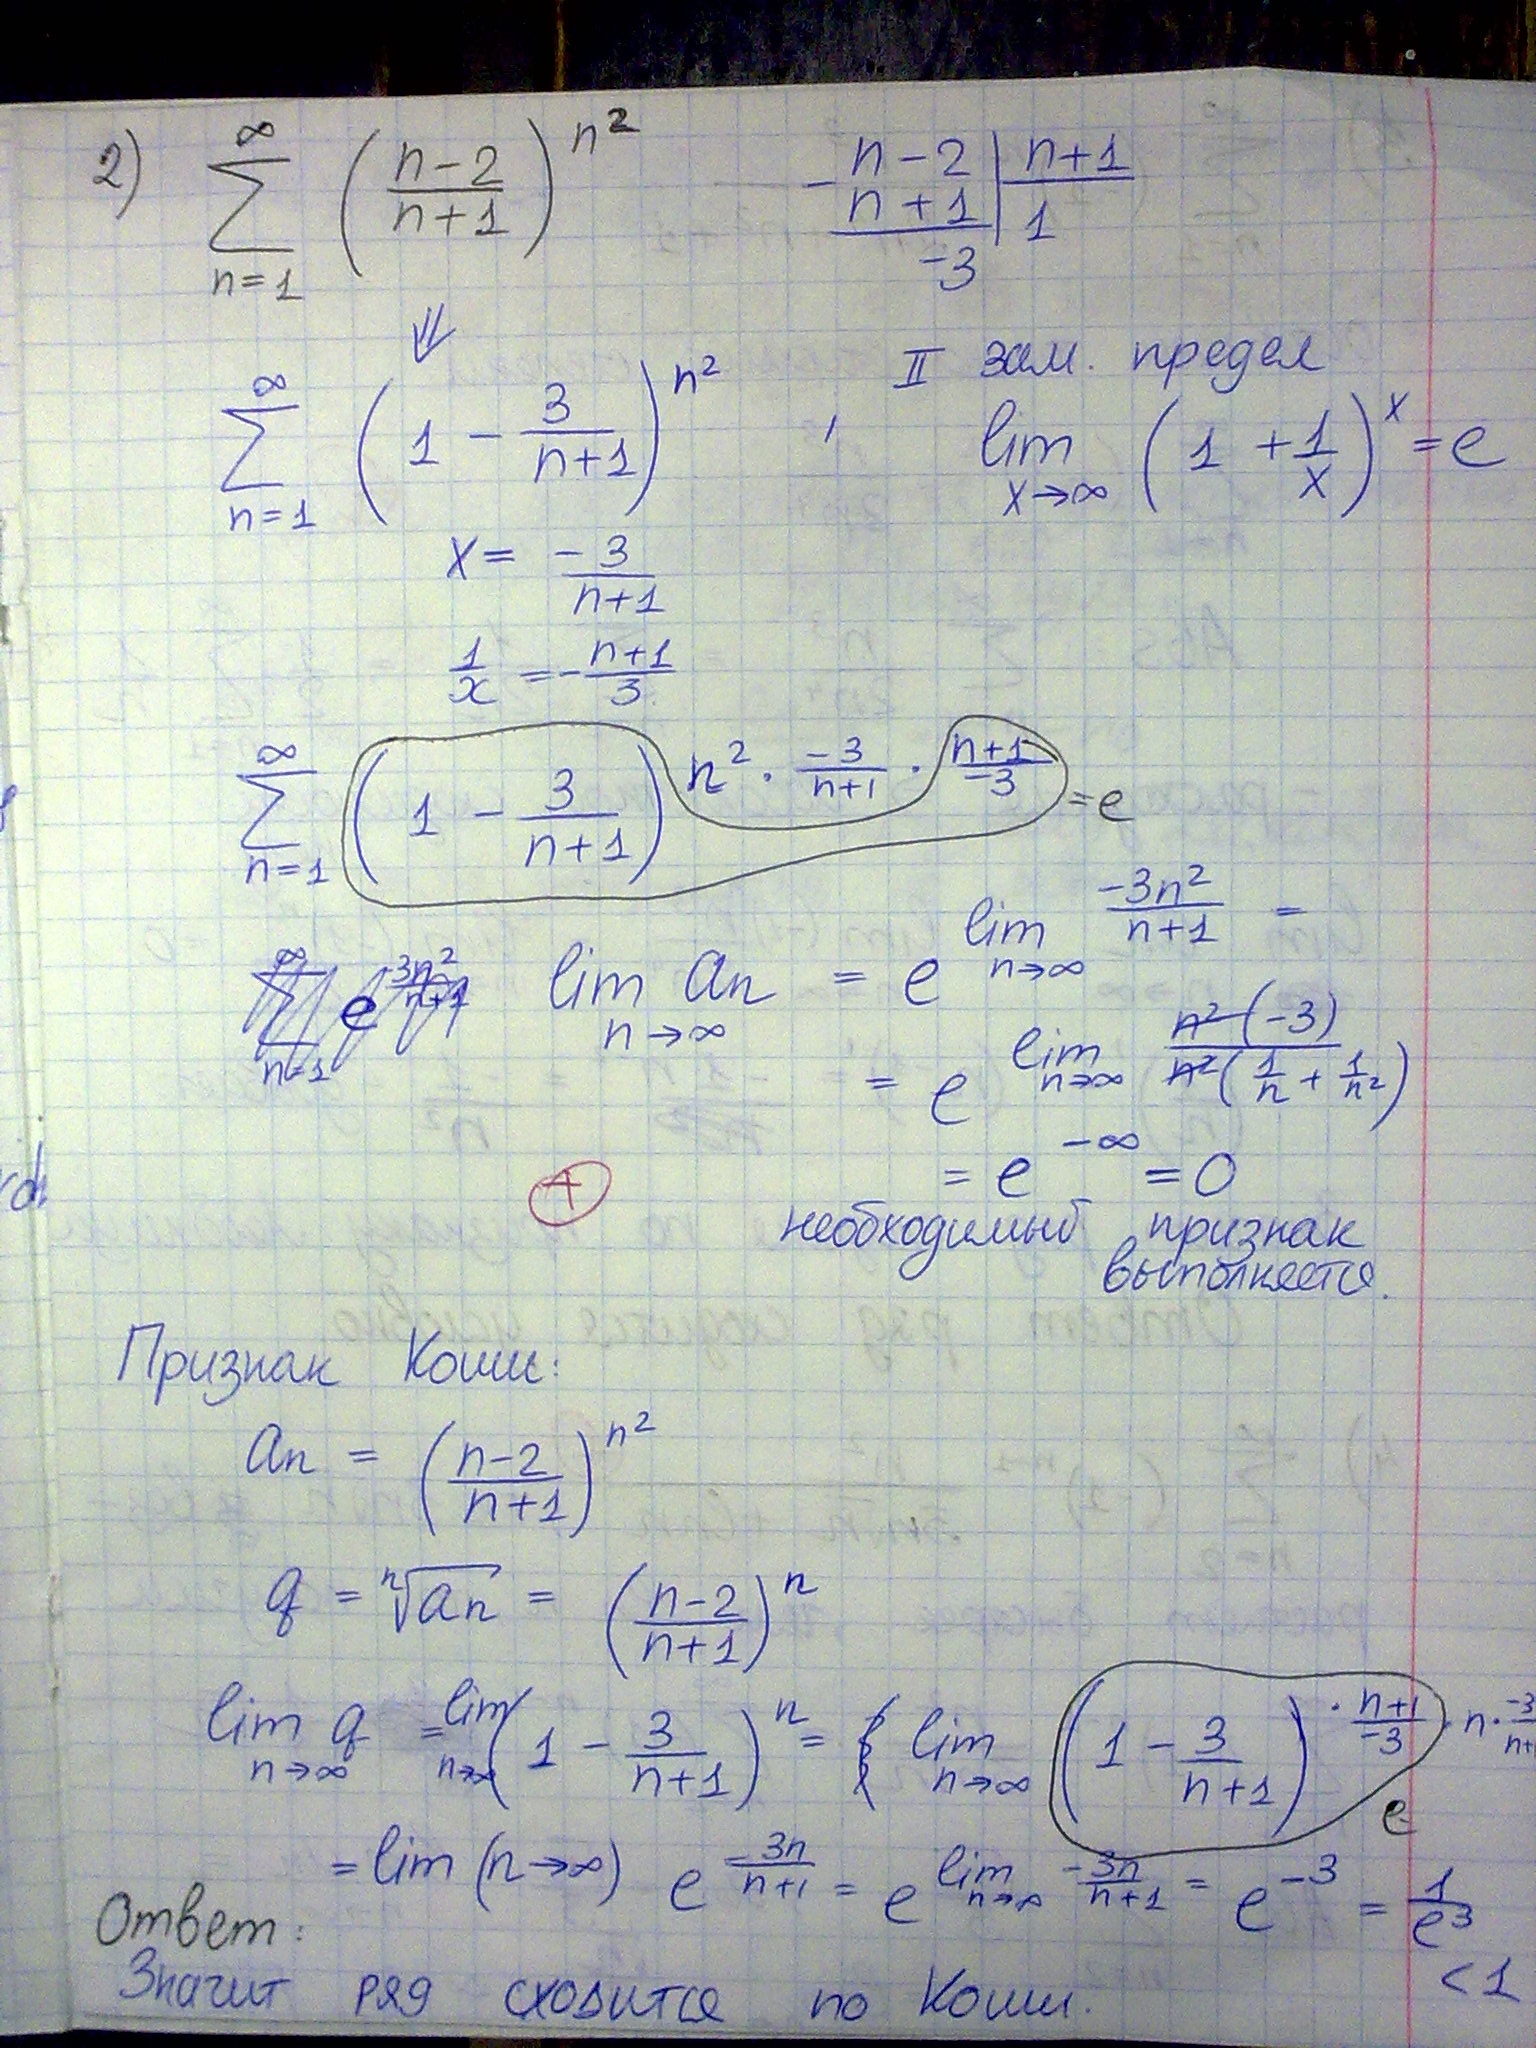 2) ∑_{n=1}^{∞} ((n-2)/(n+1))^{n²}
- n-2 | n+1
n+1 | 1
-3
⇓
∑_{n=1}^{∞} (1 - 3/(n+1))^{n²}
II зам. предел
lim_{x→∞} (1 + 1/x)^x = e
x = -3/(n+1)
1/x = -(n+1)/3
∑_{n=1}^{∞} (1 - 3/(n+1))^{n² · -3/(n+1) · (n+1)/-3} = e
∑_{n=1}^{∞} e^{3n²/(n+1)}
lim_{n→∞} an = e^{lim_{n→∞} -3n²/(n+1)} =
= e^{lim_{n→∞} n²(-3)/(n²(1/n + 1/n²))}
= e^{-∞} = 0
+
необходимый признак
выполняется.
Признак Коши:
an = ((n-2)/(n+1))^{n²}
q = ⁿ√an = ((n-2)/(n+1))^n
lim_{n→∞} q = lim_{n→∞} (1 - 3/(n+1))^n = lim_{n→∞} (1 - 3/(n+1))^{· (n+1)/-3 · n · -3/(n+1)}
e
= lim (n→∞) e^{-3n/(n+1)} = e^{lim_{n→∞} -3n/(n+1)} = e^{-3} = 1/e³
< 1
Ответ:
Значит ряд сходится по Коши.